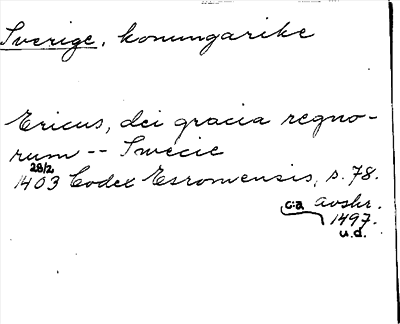 Sverige, konungarike
Ericus, dei gracia regno-
rum -- Swecie
28/2
1403 Codex Esromensis, s. 78.
c:a avskr.
1497.
u.d.